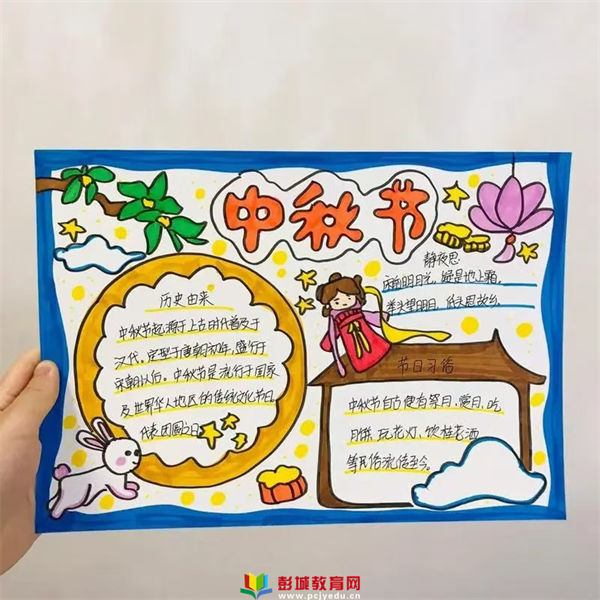 中秋节
静夜思
床前明月光，疑是地上霜。
举头望明月，低头思故乡。
历史由来
中秋节起源于上古时代普及于
汉代，定型于唐朝初年，盛行于
宋朝以后。中秋节是流行于国家
及世界华人地区的传统文化节日，
代表团圆之日
节日习俗
中秋节自古便有祭月、赏月、吃
月饼、玩花灯、饮桂花酒
等民俗流传至今。
彭城教育网
www.pcjyedu.cn